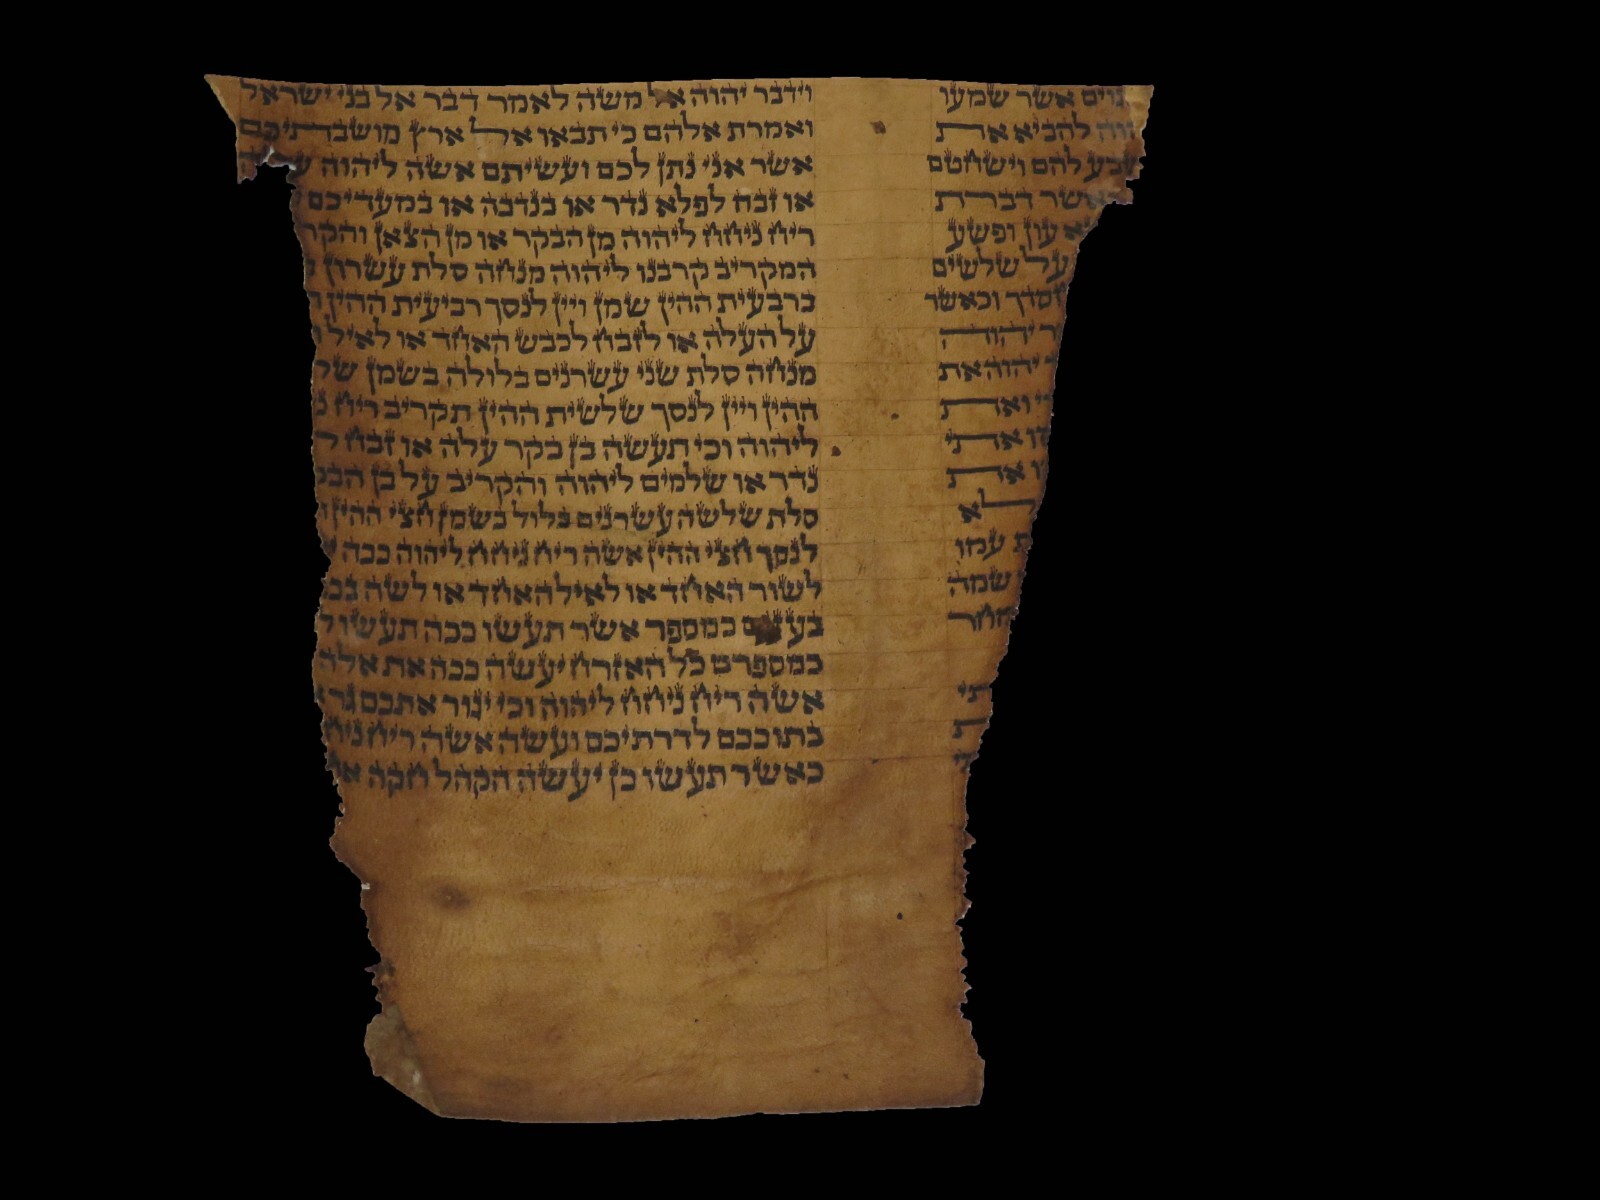 גוים אשר שמעו
להביא את
להם וישחטם
אשר דברת
עון ופשע
על שלשים
חסדך וכאשר
יהוה
יהוה את
ואת
אתי
את
לא
עמו
שמה
מחר
וידבר יהוה אל משה לאמר דבר אל בני ישראל
ואמרת אלהם כי תבאו אל ארץ מושבתיכם
אשר אני נתן לכם ועשיתם אשה ליהוה
או זבח לפלא נדר או בנדבה או במעדיכם
ריח ניחח ליהוה מן הבקר או מן הצאן והקר
המקריב קרבנו ליהוה מנחה סלת עשרון
ברבעית ההין שמן ויין לנסך רביעית ההין
על העלה או לזבח לכבש האחד או לאיל
מנחה סלת שני עשרנים בלולה בשמן של
ההין ויין לנסך שלשית ההין תקריב ריח
ליהוה וכי תעשה בן בקר עלה או זבח
נדר או שלמים ליהוה והקריב על בן הבק
סלת שלשה עשרנים בלול בשמן חצי ההין
לנסך חצי ההין אשה ריח ניחח ליהוה ככה
לשור האחד או לאיל האחד או לשה בכ
בעזים כמספר אשר תעשו ככה תעשו ל
כמספרם כל האזרח יעשה ככה את אלה
אשה ריח ניחח ליהוה וכי יגור אתכם גר
בתוככם לדרתיכם ועשה אשה ריח ניח
כאשר תעשו כן יעשה הקהל חקה א